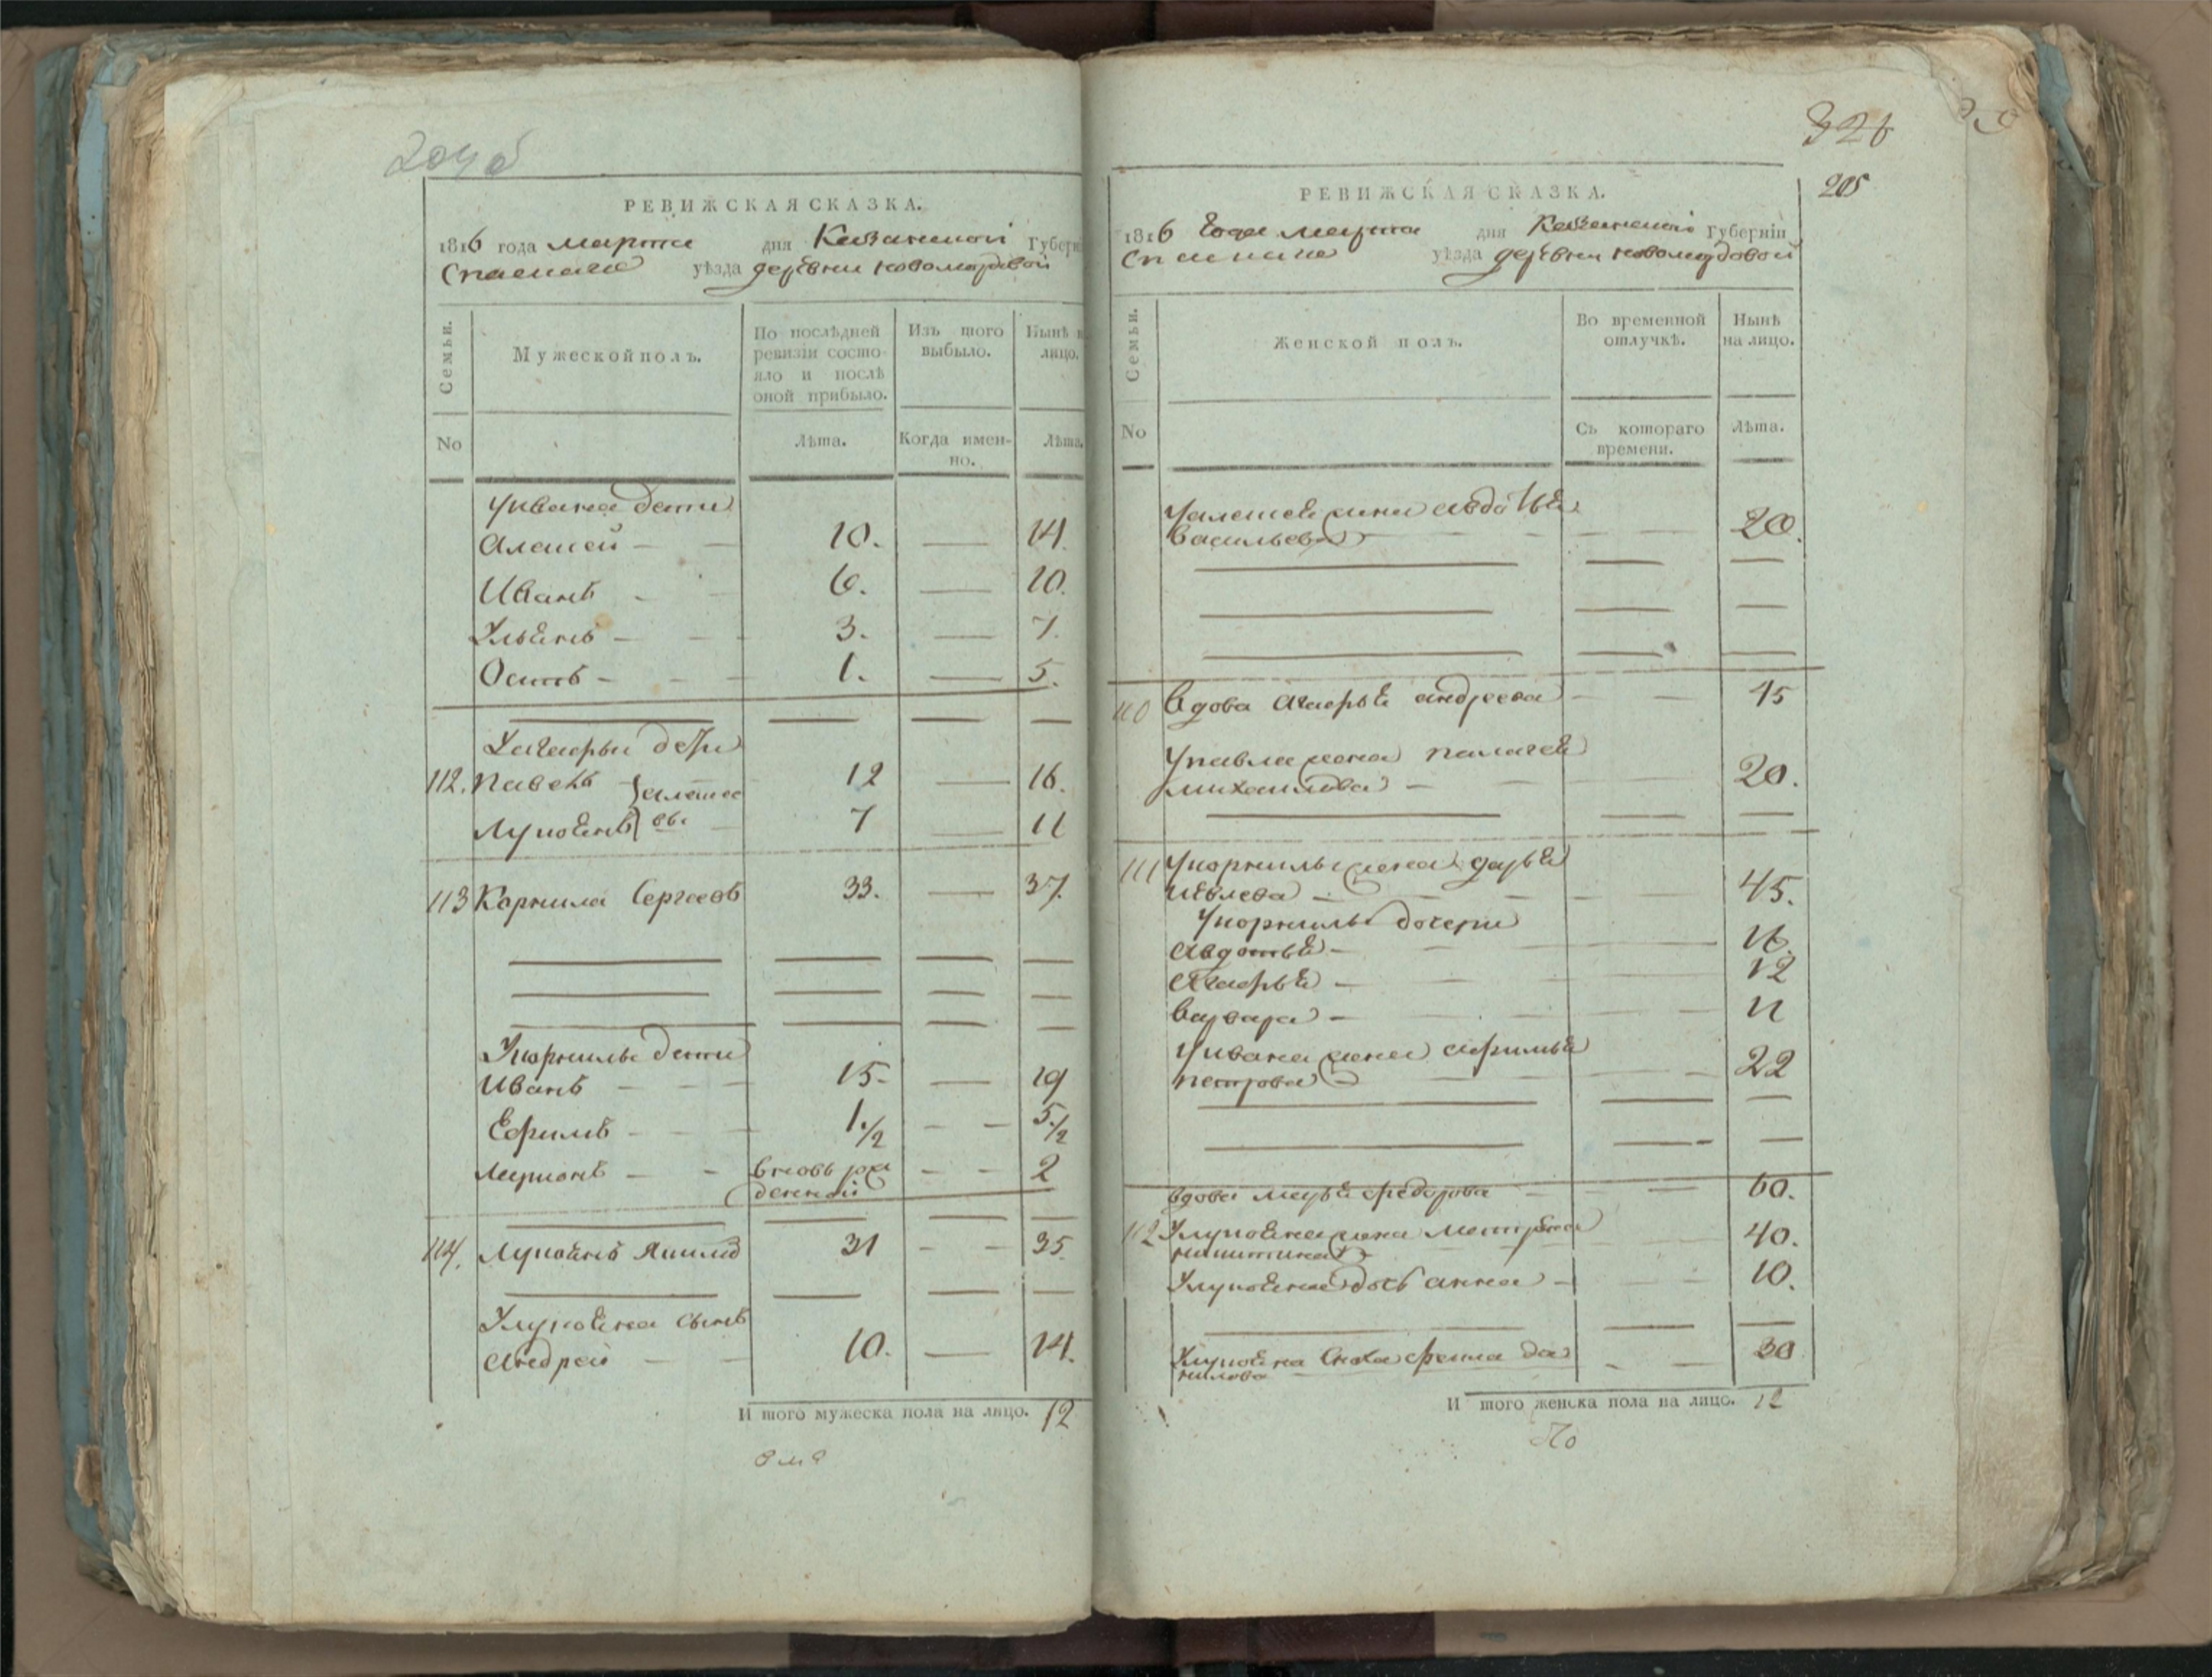 204 об
РЕВИЖСКАЯ СКАЗКА.
1816 года марта дня Казанской Губерні
Спаскаго уѣзда деревни новомордовой
Семьи.
Мужеской полъ.
По послѣдней ревизіи состояло и послѣ оной прибыло.
Изъ того выбыло.
Нынѣ н лицо.
No
Лѣта.
Когда именно.
Лѣта.
Уивана дети
Алексей 10. 14.
Иванъ 6. 10.
Ульянъ 3. 7.
Осипъ 1. 5.
дети
112. Павелъ 12 16.
Лукоянъ 7 11
113 Корнила Сергеевъ 33. 37.
Укорнилы дети
Иванъ 15. 19
Ефимъ 1 1/2 5 1/2
Ларионъ вновь рож
денной 2
114. Лукоянъ Якимо 31 35.
Улукояна сынъ
Андрей 10. 14.
И того мужеска пола на лицо. 12
326
205
РЕВИЖСКАЯ СКАЗКА.
1816 Года марта дня Казанской Губерніи
Спаскаго уѣзда деревни новомордовой
Семьи.
Женской полъ.
Во временной отлучкѣ.
Нынѣ на лицо.
No
Съ котораго времени.
Лѣта.
Уалексея жена авдотья
Васильева 20.
110 Вдова андреева 45
Упавла жена пелагея
михайлова 20.
111 Укорнилы жена дарья
45.
Укорнилы дочери
Авдотья 16.
12
Варвара 11
Уивана жена афимья
петрова 22
вдова марья федорова 60.
112 Улукояна жена матрена
никитина 40.
Улукояна дочь анна 10.
Улукояна сноха фекла да
нилова 30
И того женска пола на лицо. 12